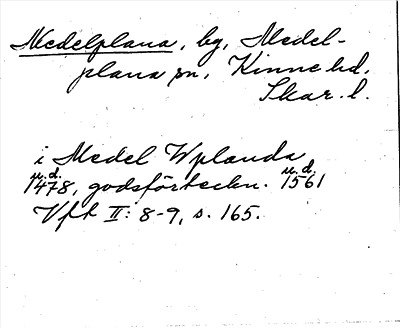 Medelplana, by, Medel-
plana sn, Kinne hd,
Skar. l.
i Medel Wplanda
u.d. u.d.
1478, godsförteckn. 1561
Vft II: 8-9, s. 165.